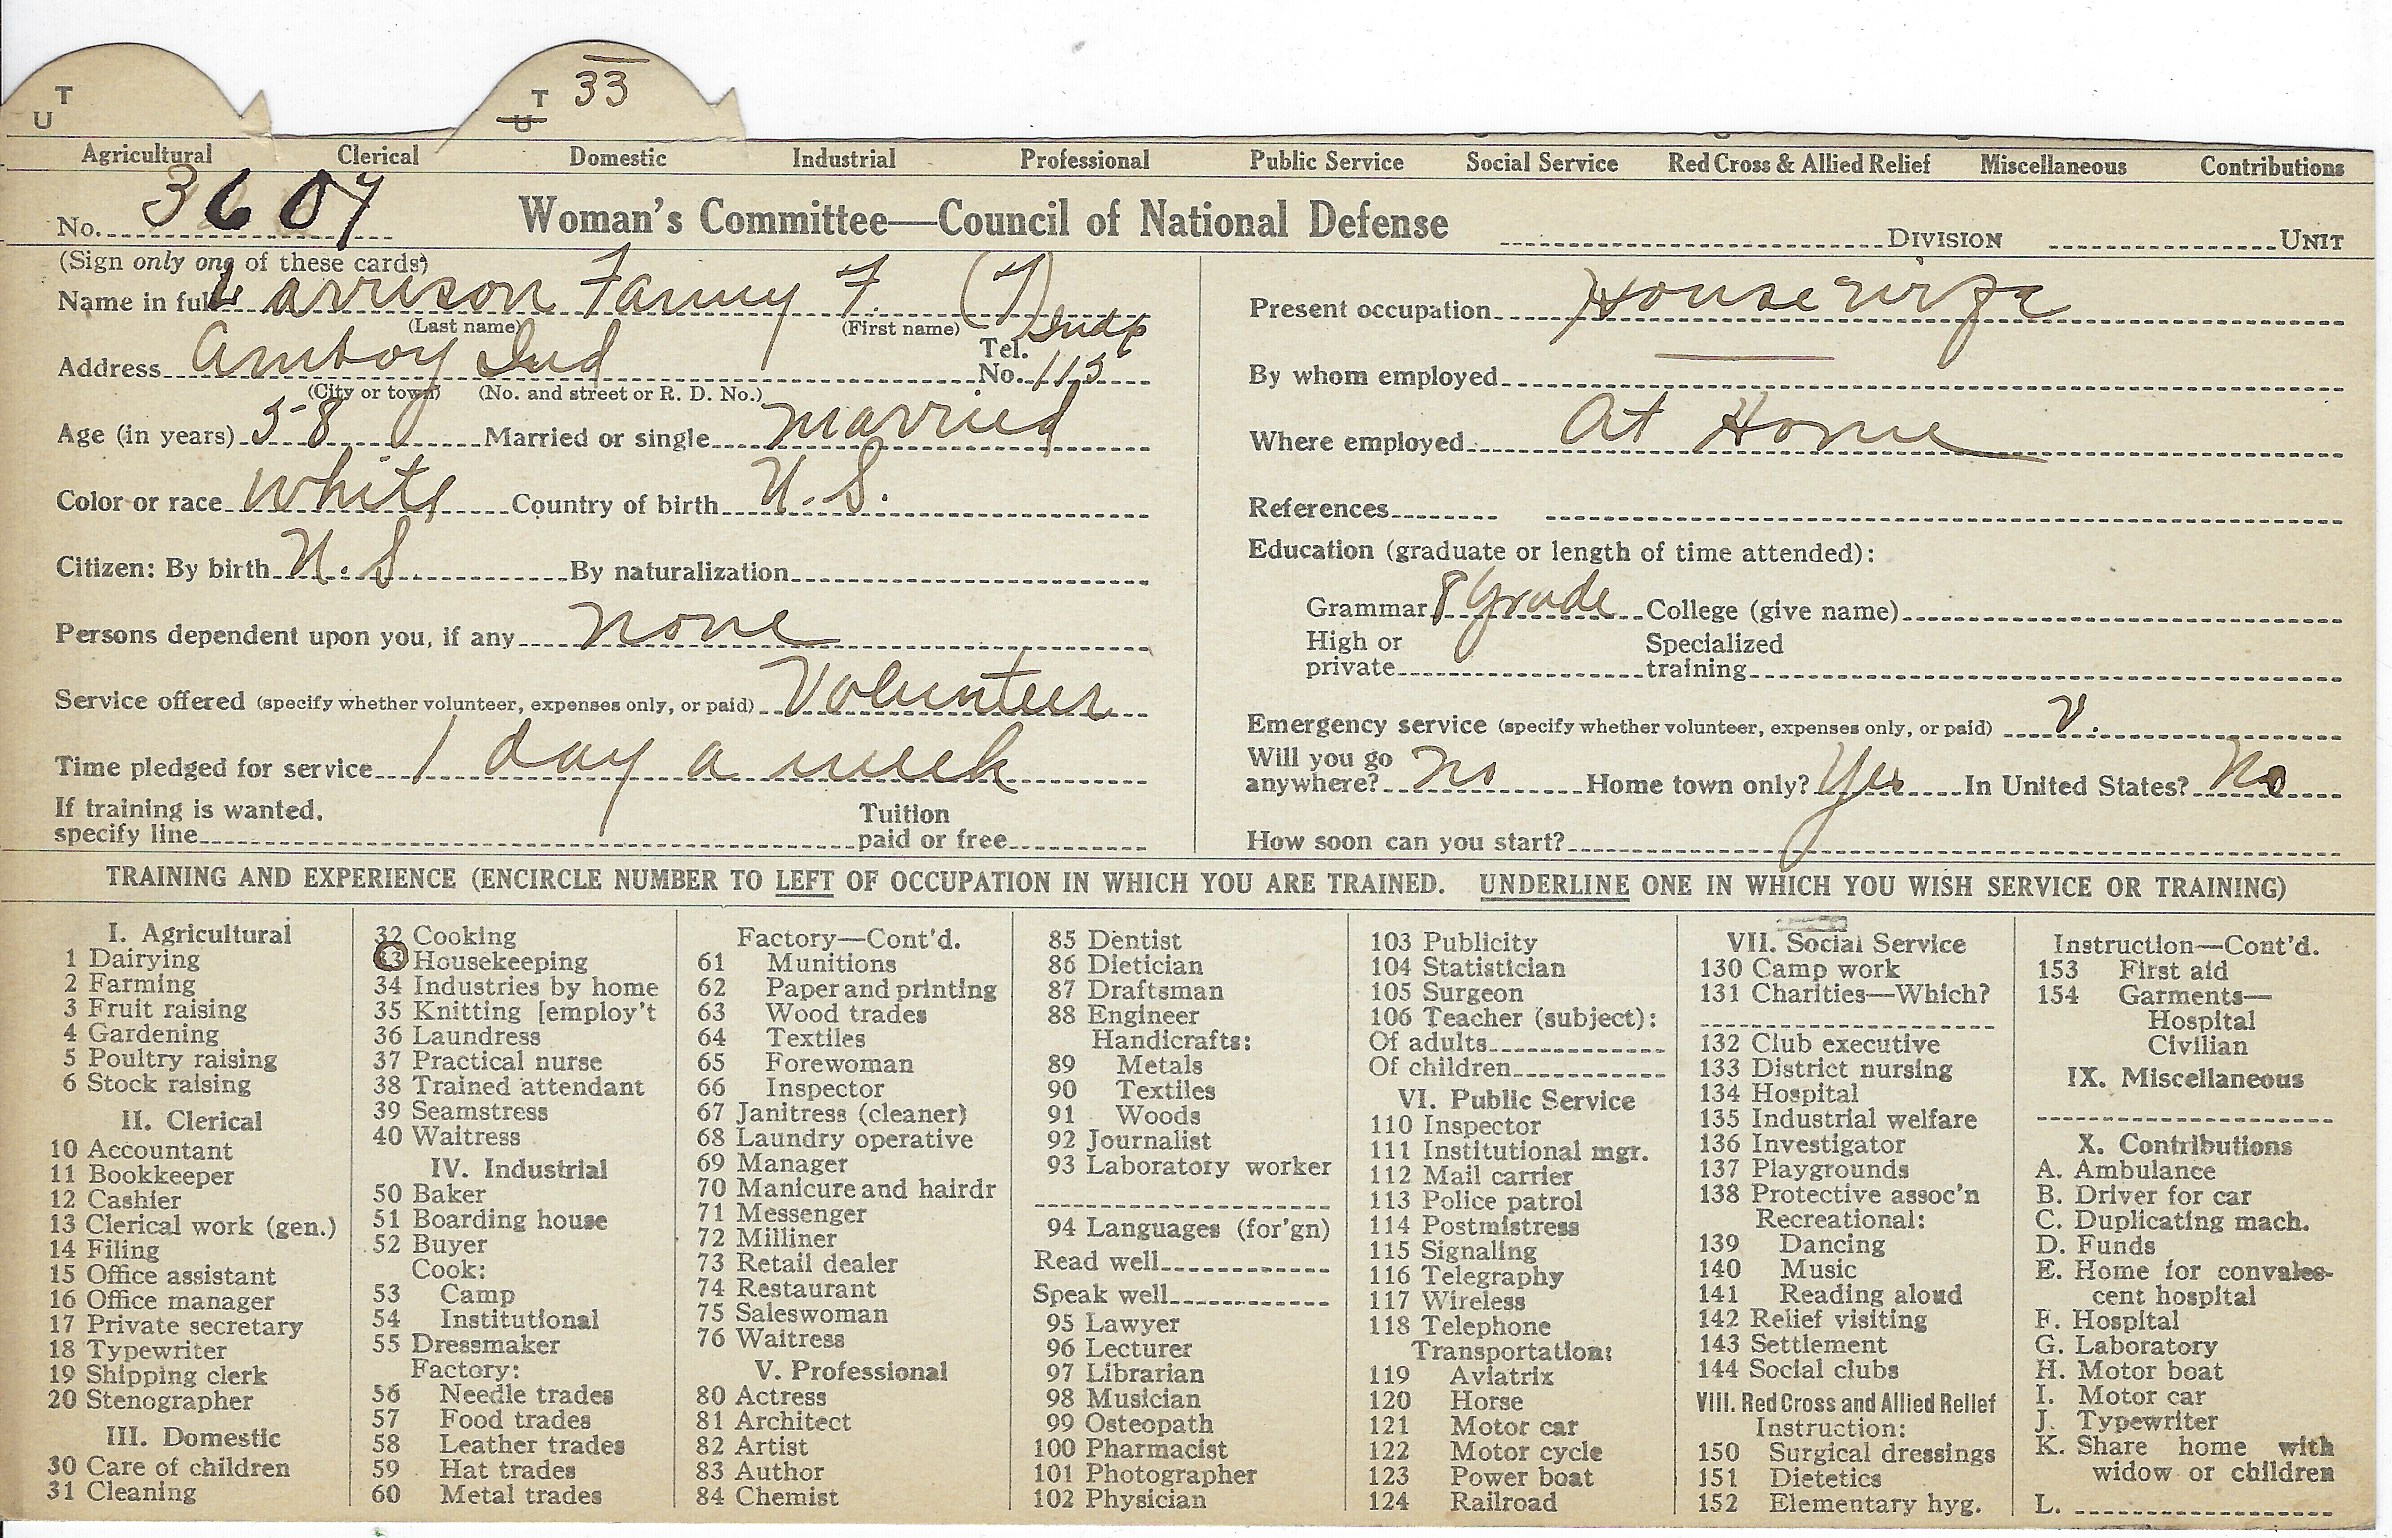 T
U
33
T
U
Agricultural Clerical Domestic Industrial Professional Public Service Social Service Red Cross & Allied Relief Miscellaneous Contributions
No. 3607
Woman's Committee—Council of National Defense
DIVISION UNIT
(Sign only one of these cards)
Name in full Larrison Fanny F. (F)
(Last name) (First name)
Address Amboy Ind Tel. No. Indp 113
(City or town) (No. and street or R. D. No.)
Age (in years) 58 Married or single married
Color or race White Country of birth U. S.
Citizen: By birth U. S By naturalization
Persons dependent upon you, if any none
Service offered (specify whether volunteer, expenses only, or paid) Volunteer
Time pledged for service 1 day a week
If training is wanted, specify line Tuition paid or free
Present occupation Housewife
By whom employed
Where employed At Home
References
Education (graduate or length of time attended):
Grammar 8 Grade College (give name)
High or private Specialized training
Emergency service (specify whether volunteer, expenses only, or paid) V.
Will you go anywhere? no Home town only? Yes In United States? No
How soon can you start?
TRAINING AND EXPERIENCE (ENCIRCLE NUMBER TO LEFT OF OCCUPATION IN WHICH YOU ARE TRAINED. UNDERLINE ONE IN WHICH YOU WISH SERVICE OR TRAINING)
I. Agricultural
1 Dairying
2 Farming
3 Fruit raising
4 Gardening
5 Poultry raising
6 Stock raising
II. Clerical
10 Accountant
11 Bookkeeper
12 Cashier
13 Clerical work (gen.)
14 Filing
15 Office assistant
16 Office manager
17 Private secretary
18 Typewriter
19 Shipping clerk
20 Stenographer
III. Domestic
30 Care of children
31 Cleaning
32 Cooking
33 Housekeeping
34 Industries by home
35 Knitting [employ't
36 Laundress
37 Practical nurse
38 Trained attendant
39 Seamstress
40 Waitress
IV. Industrial
50 Baker
51 Boarding house
52 Buyer
Cook:
53 Camp
54 Institutional
55 Dressmaker
Factory:
56 Needle trades
57 Food trades
58 Leather trades
59 Hat trades
60 Metal trades
Factory—Cont'd.
61 Munitions
62 Paper and printing
63 Wood trades
64 Textiles
65 Forewoman
66 Inspector
67 Janitress (cleaner)
68 Laundry operative
69 Manager
70 Manicure and hairdr
71 Messenger
72 Milliner
73 Retail dealer
74 Restaurant
75 Saleswoman
76 Waitress
V. Professional
80 Actress
81 Architect
82 Artist
83 Author
84 Chemist
85 Dentist
86 Dietician
87 Draftsman
88 Engineer
Handicrafts:
89 Metals
90 Textiles
91 Woods
92 Journalist
93 Laboratory worker
94 Languages (for'gn)
Read well
Speak well
95 Lawyer
96 Lecturer
97 Librarian
98 Musician
99 Osteopath
100 Pharmacist
101 Photographer
102 Physician
103 Publicity
104 Statistician
105 Surgeon
106 Teacher (subject):
Of adults
Of children
VI. Public Service
110 Inspector
111 Institutional mgr.
112 Mail carrier
113 Police patrol
114 Postmistress
115 Signaling
116 Telegraphy
117 Wireless
118 Telephone
Transportation:
119 Aviatrix
120 Horse
121 Motor car
122 Motor cycle
123 Power boat
124 Railroad
VII. Social Service
130 Camp work
131 Charities—Which?
132 Club executive
133 District nursing
134 Hospital
135 Industrial welfare
136 Investigator
137 Playgrounds
138 Protective assoc'n
Recreational:
139 Dancing
140 Music
141 Reading aloud
142 Relief visiting
143 Settlement
144 Social clubs
VIII. Red Cross and Allied Relief
Instruction:
150 Surgical dressings
151 Dietetics
152 Elementary hyg.
Instruction—Cont'd.
153 First aid
154 Garments—
Hospital
Civilian
IX. Miscellaneous
X. Contributions
A. Ambulance
B. Driver for car
C. Duplicating mach.
D. Funds
E. Home for convales-
cent hospital
F. Hospital
G. Laboratory
H. Motor boat
I. Motor car
J. Typewriter
K. Share home with
widow or children
L.